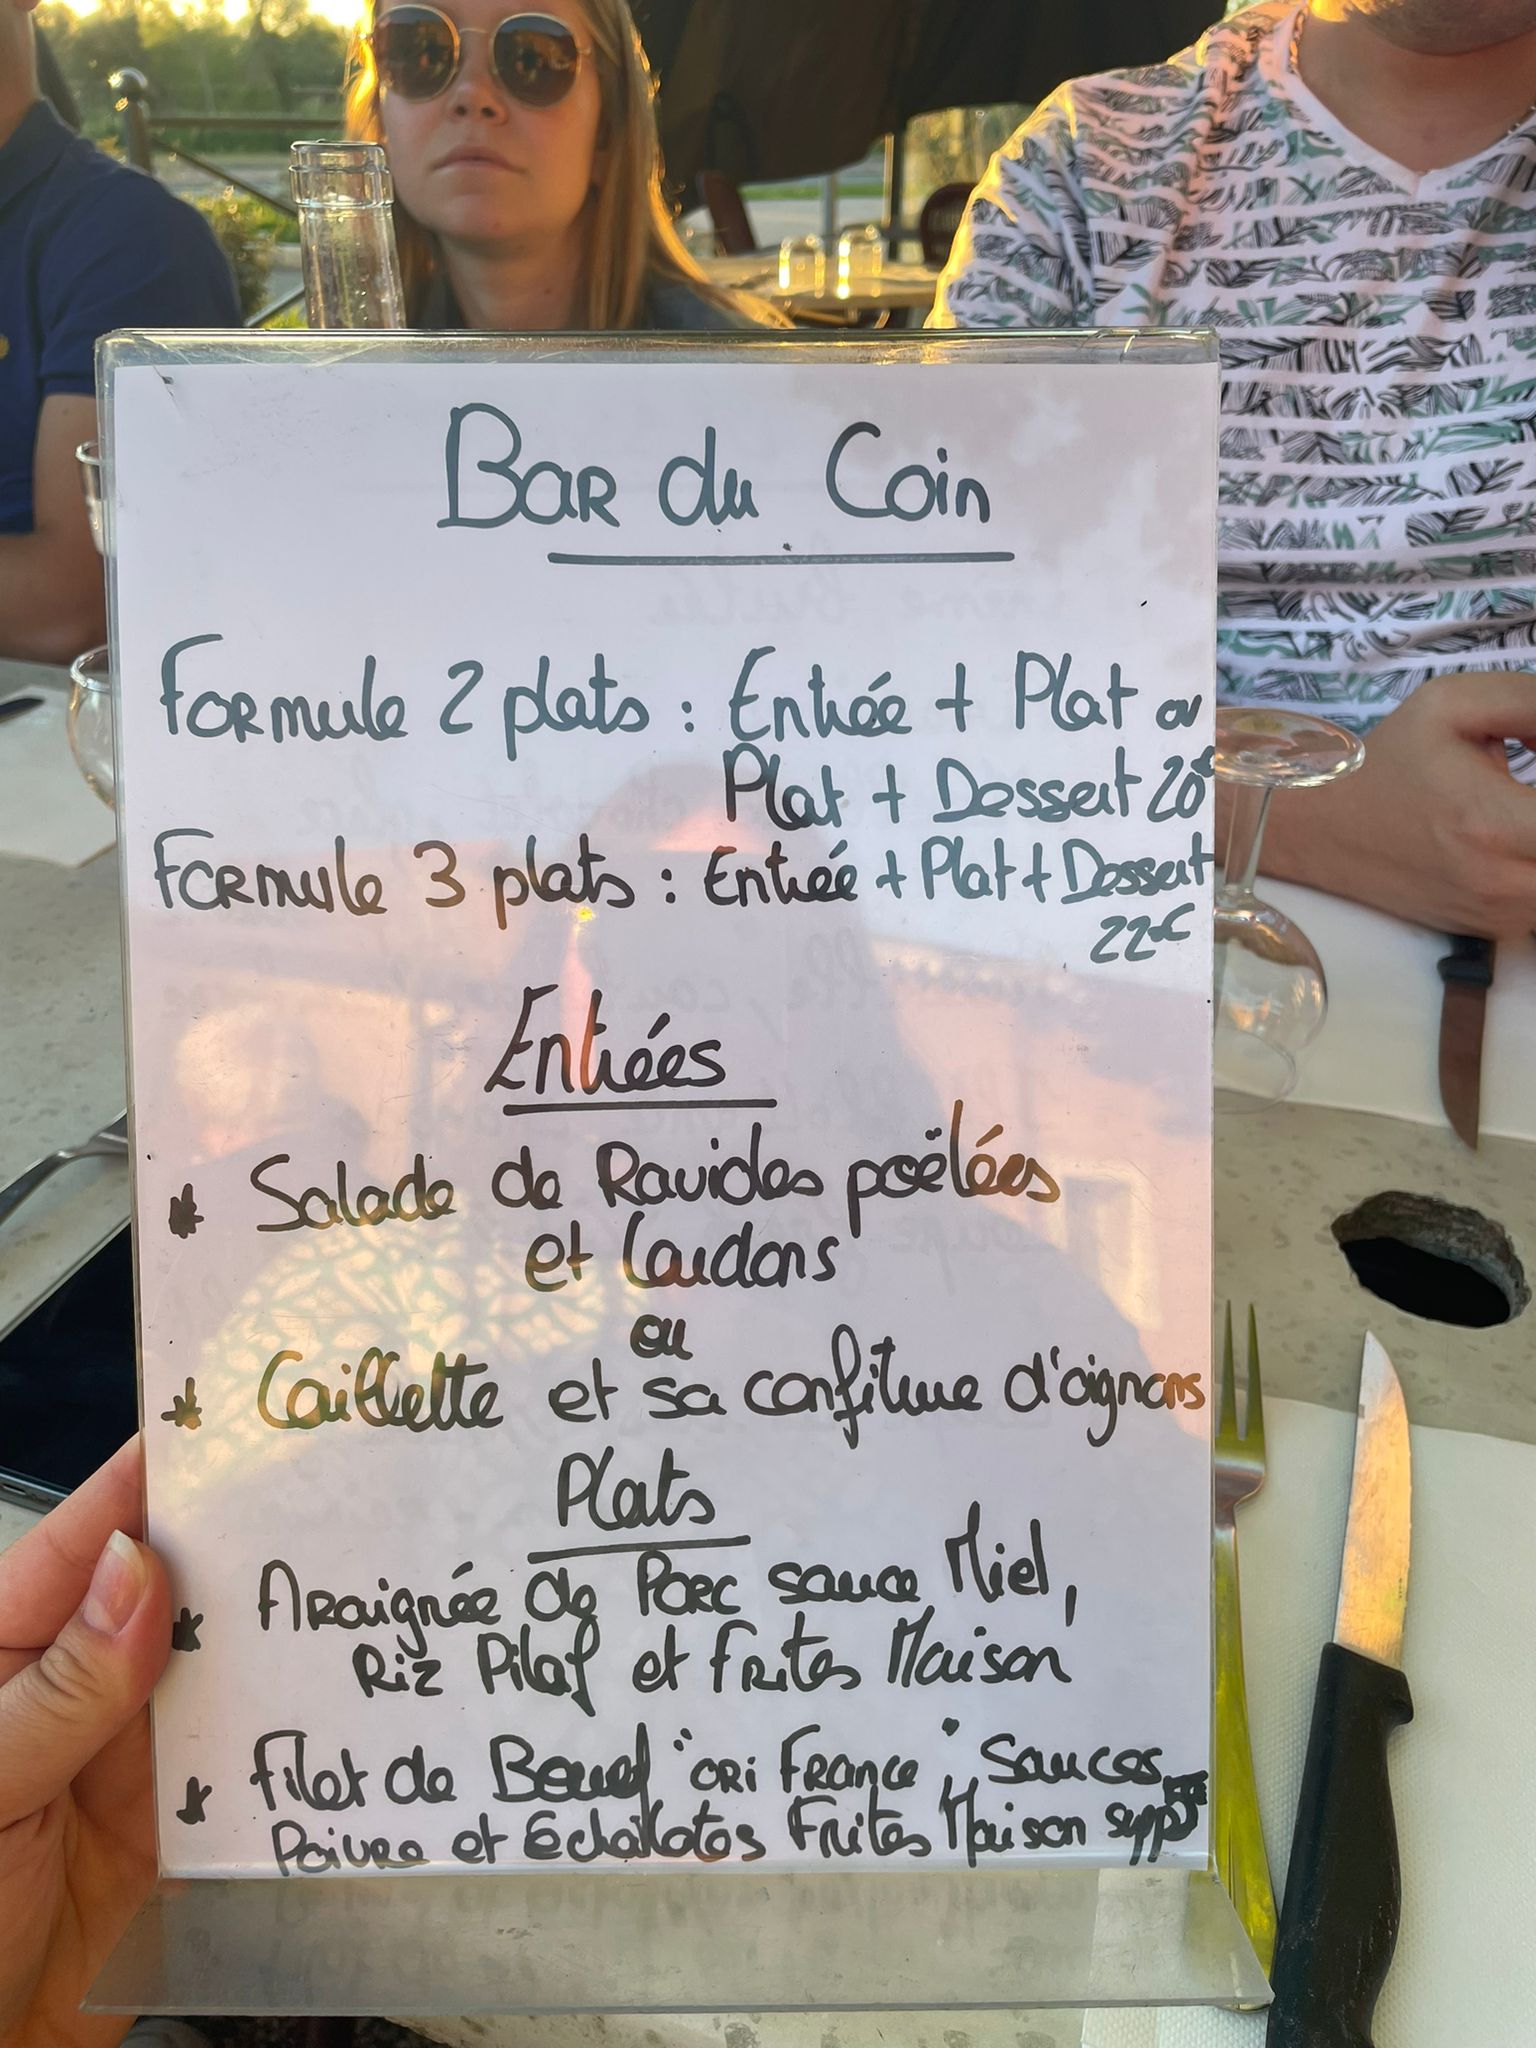 Bar du Coin
Formule 2 plats : Entrée + Plat ou
Plat + Dessert 20€
Formule 3 plats : Entrée + Plat + Dessert
22€
Entrées
* Salade de Ravioles poëlées
et Lardons
ou
* Caillette et sa confiture d'oignons
Plats
* Araignée de Porc sauce Miel,
Riz Pilaf et Frites Maison
* Filet de Boeuf "ORi France" Sauces
Poivre et Echallotes Frites Maison supp